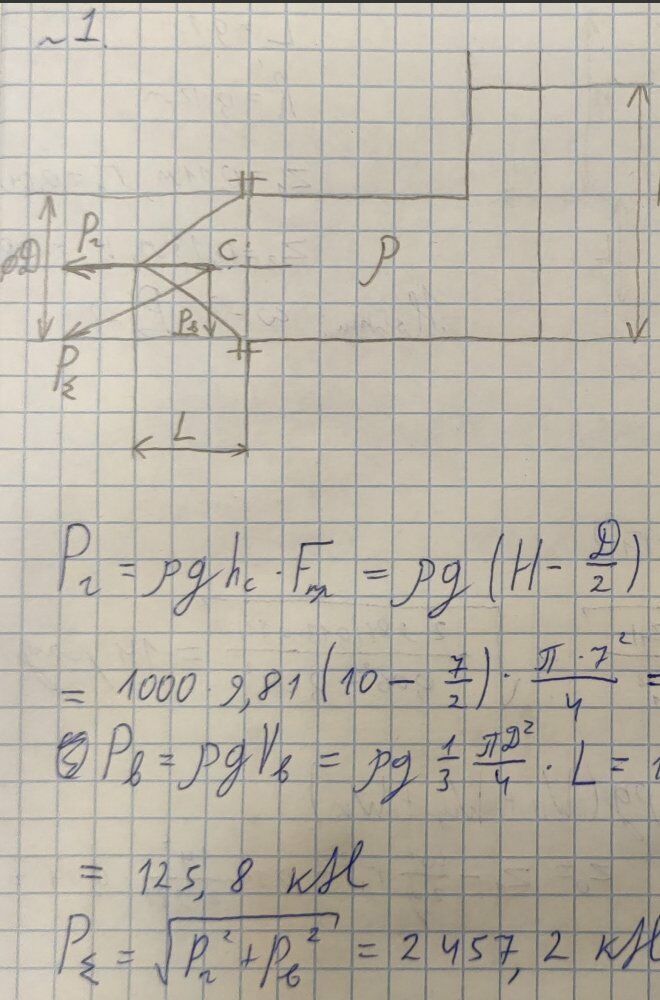 ~1.
P₂
C
ρ
⌀D
P_в
P_Σ
L
P₂ = ρg h_c · F_пл = ρg (H - Д/2)
= 1000 · 9,81 (10 - 7/2) · π · 7²/4 =
P_в = ρg V_в = ρg 1/3 πД²/4 · L = 1
= 125,8 кН
P_Σ = √(P₂² + P_в²) = 2 457,2 кН